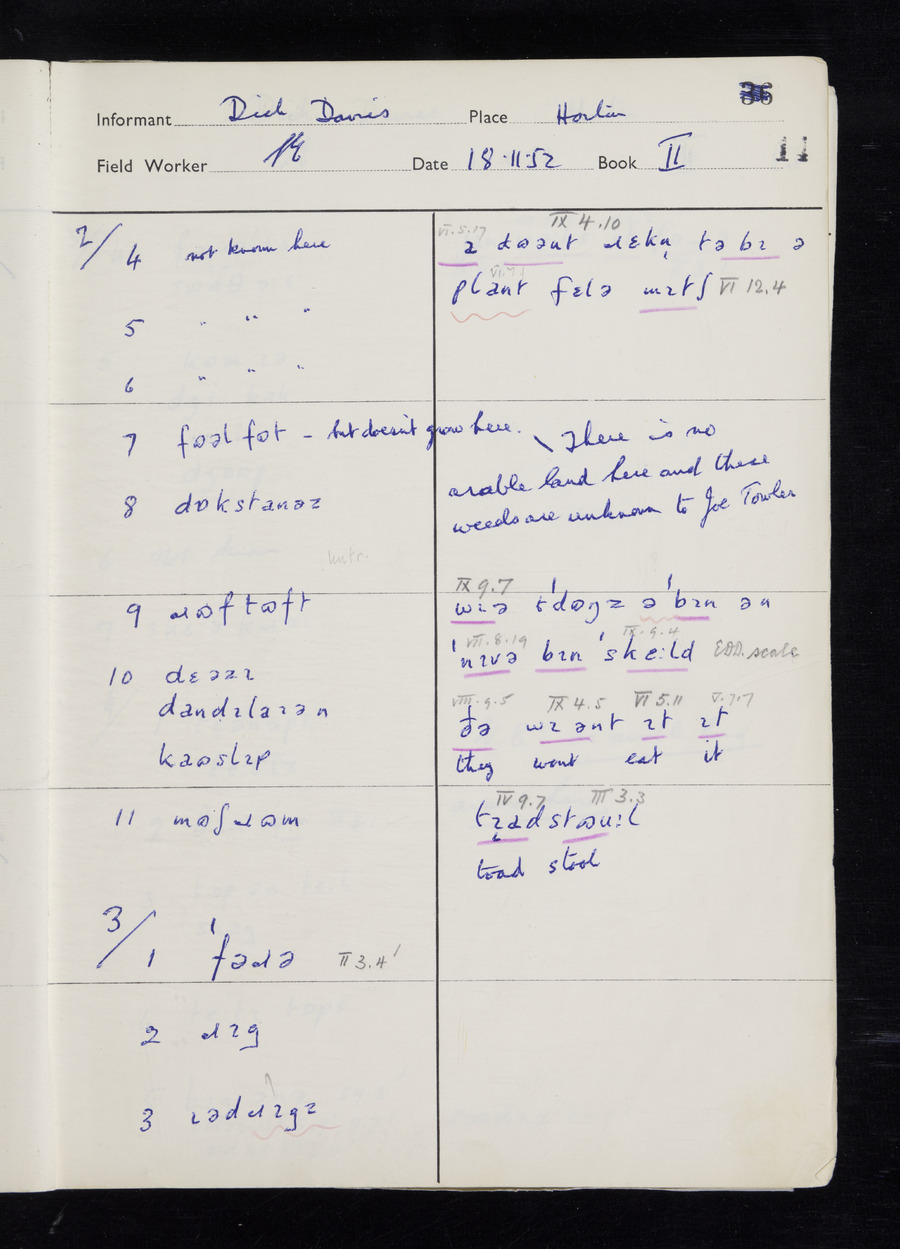 Informant Dick Davis Place Horton
Field Worker Date 18.11.52 Book II
11
2/4 not known here
5 " " "
6 " " "
7 fɷəlfɷt – but doesn't grow here.
8 dɒkstanəz
9 ɹɷftɷft
10 dɛəzɪ
dandɪlaɪən
kaɷslɪp
11 mɷʃɹɷm
3/1 ˈfəɹə II 3.4
2 ɹɪg
3 ɪədɹɪgz
VI.5.17 IX 4.10
ɪ dɷənt ɹɛkn̩ tə bɪ ə
plant fɛlə mɪtʃ VI 12.4
\ There is no
arable land here and these
weeds are unknown to Joe Towler
IX 9.7
wɪə tˈdɷgz əˈbɪn ən
VII.8.19 IX.9.4
ˈnɪvə bɪn ˈskɛːld EDD. scale
VIII.9.5 IX 4.5 VI 5.11 V.7.7
ðə wɪənt ɪt ɪt
they wont eat it
IV 9.7 III 3.3
tɪ̣ədstɷuːl
toad stool